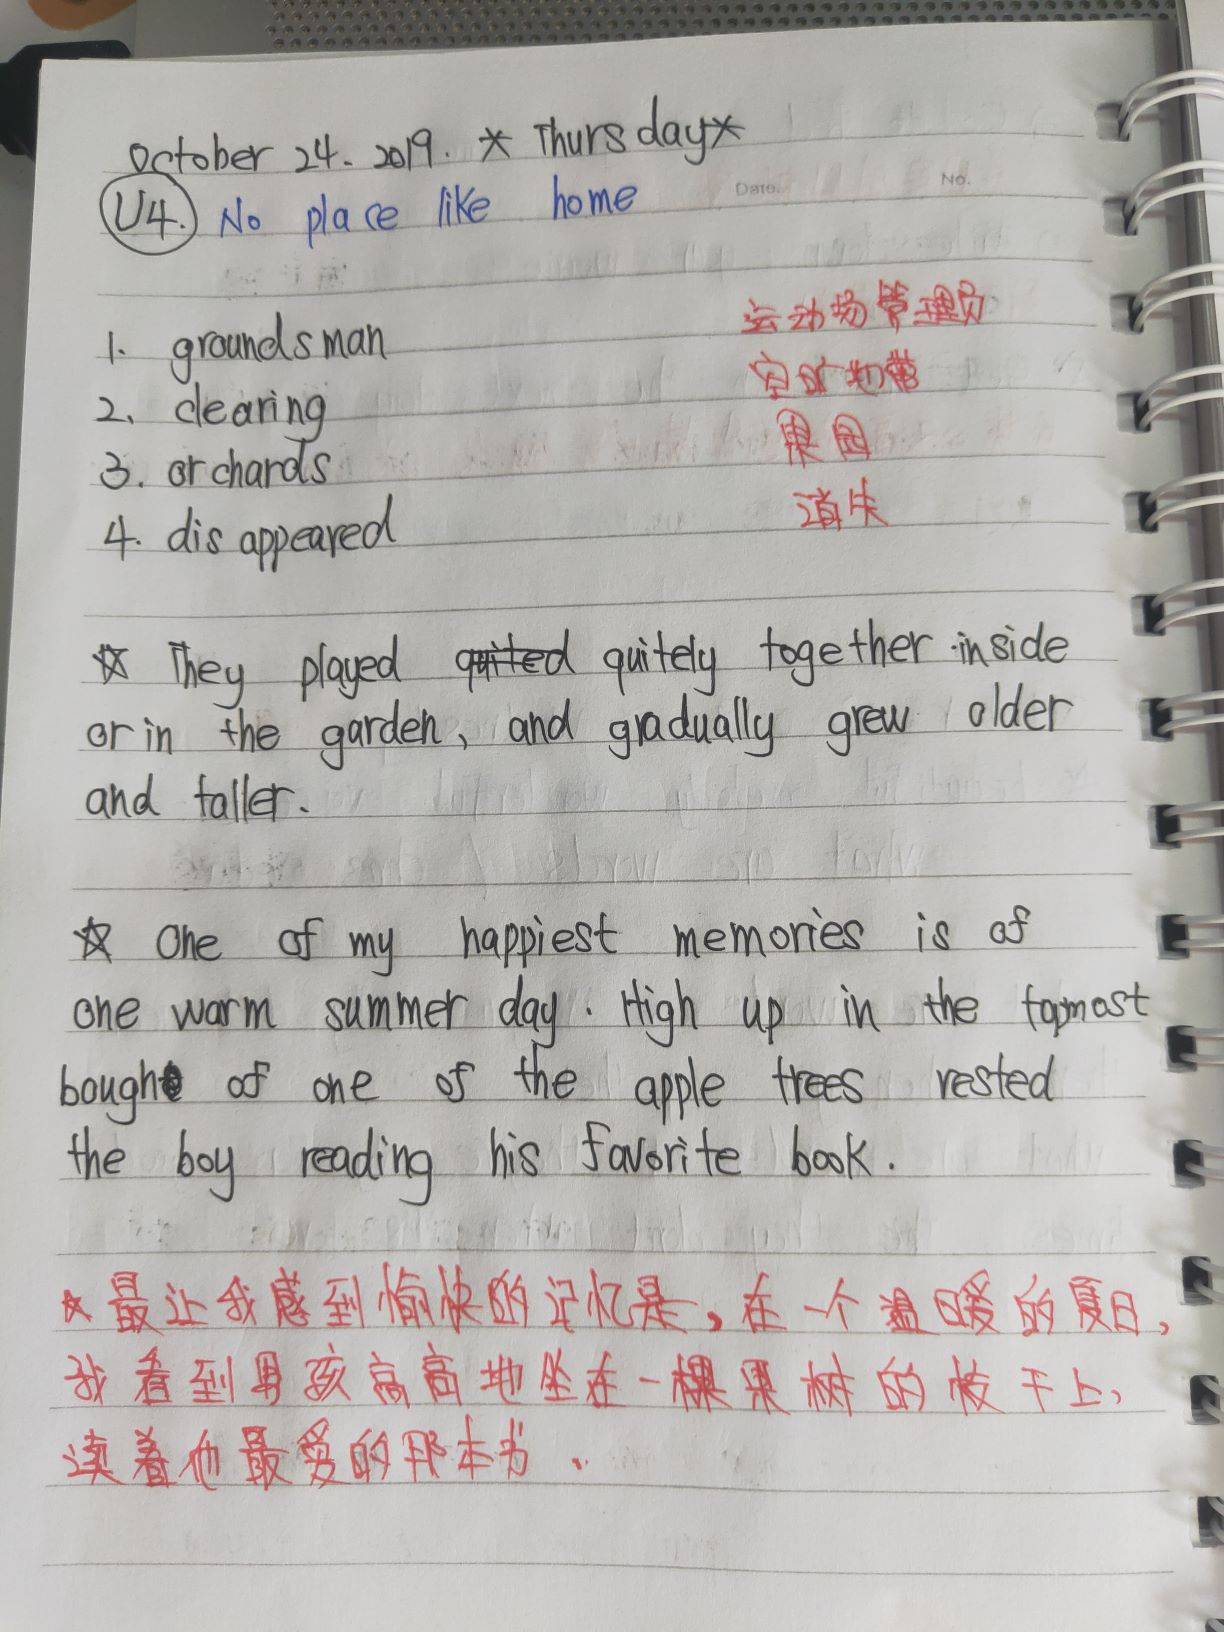 October 24. 2019. * Thursday*
U4. No place like home
Date. No.
1. groundsman 运动场管理员
2. clearing 空旷地带
3. orchards 果园
4. disappeared 消失
☆ They played quited quitely together inside
or in the garden, and gradually grew older
and taller.
☆ One of my happiest memories is of
one warm summer day. High up in the topmost
bough of one of the apple trees rested
the boy reading his favorite book.
☆ 最让我感到愉快的记忆是,在一个温暖的夏日,
我看到男孩高高地坐在一棵果树的枝干上,
读着他最爱的那本书.